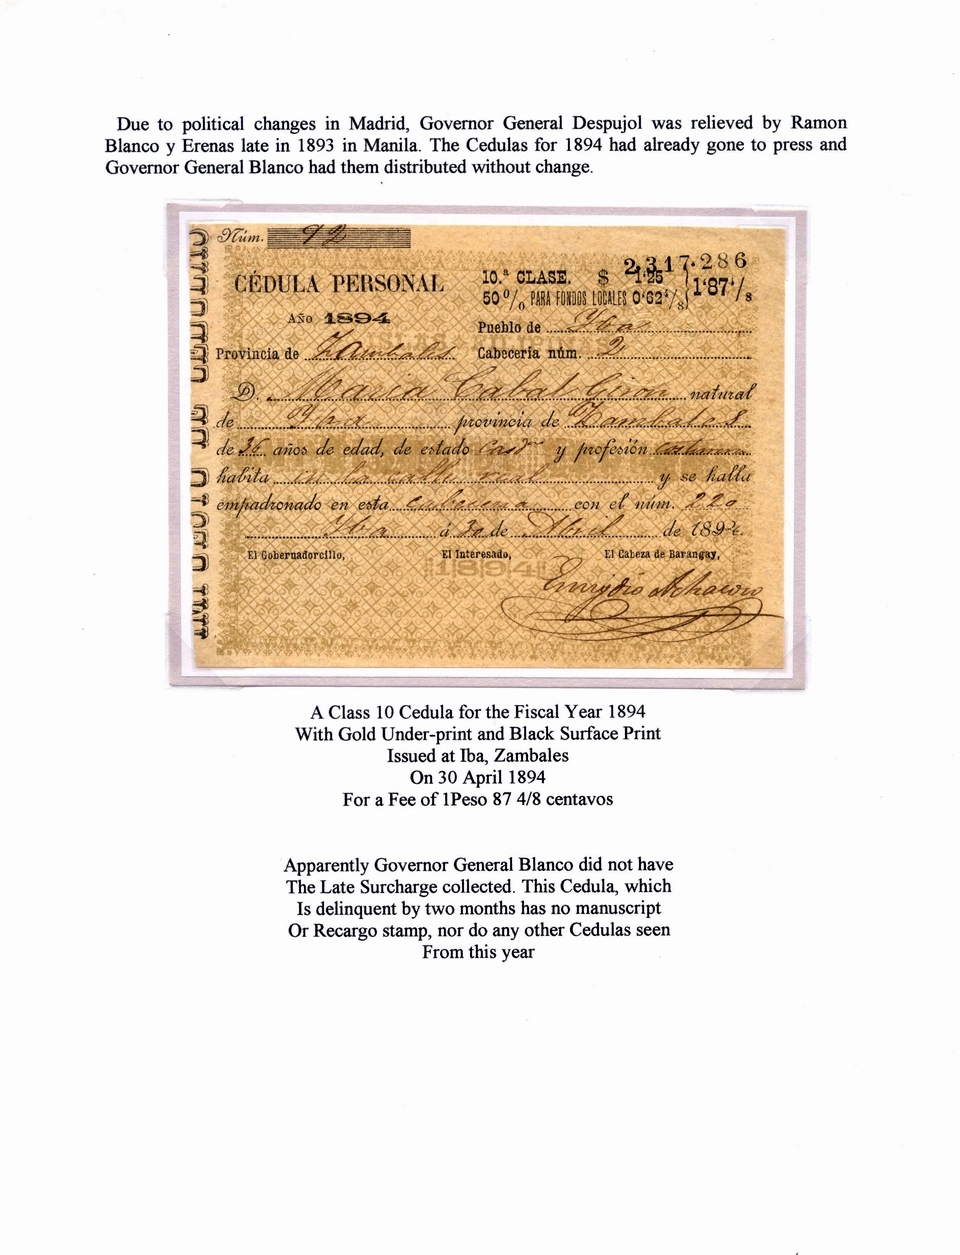 Due to political changes in Madrid, Governor General Despujol was relieved by Ramon
Blanco y Erenas late in 1893 in Manila. The Cedulas for 1894 had already gone to press and
Governor General Blanco had them distributed without change.
Núm. 92
CÉDULA PERSONAL
10.ª CLASE. $ 1'25
2.317.286
50 % PARA FONDOS LOCALES 0'62⁴/₈
1'87⁴/₈
AÑO 1894
Pueblo de Yba
Provincia de Zambales Cabecería núm. 2
D. Maria Cabal natural
de Yba provincia de Zambales
de 36 años de edad, de estado y profesión
habita en la calle real y se halla
empadronado en esta con el núm. 220
Yba á 30 de Abril de 1894
El Gobernadorcillo, El Interesado, El Cabeza de Barangay,
1894
A Class 10 Cedula for the Fiscal Year 1894
With Gold Under-print and Black Surface Print
Issued at Iba, Zambales
On 30 April 1894
For a Fee of 1Peso 87 4/8 centavos
Apparently Governor General Blanco did not have
The Late Surcharge collected. This Cedula, which
Is delinquent by two months has no manuscript
Or Recargo stamp, nor do any other Cedulas seen
From this year